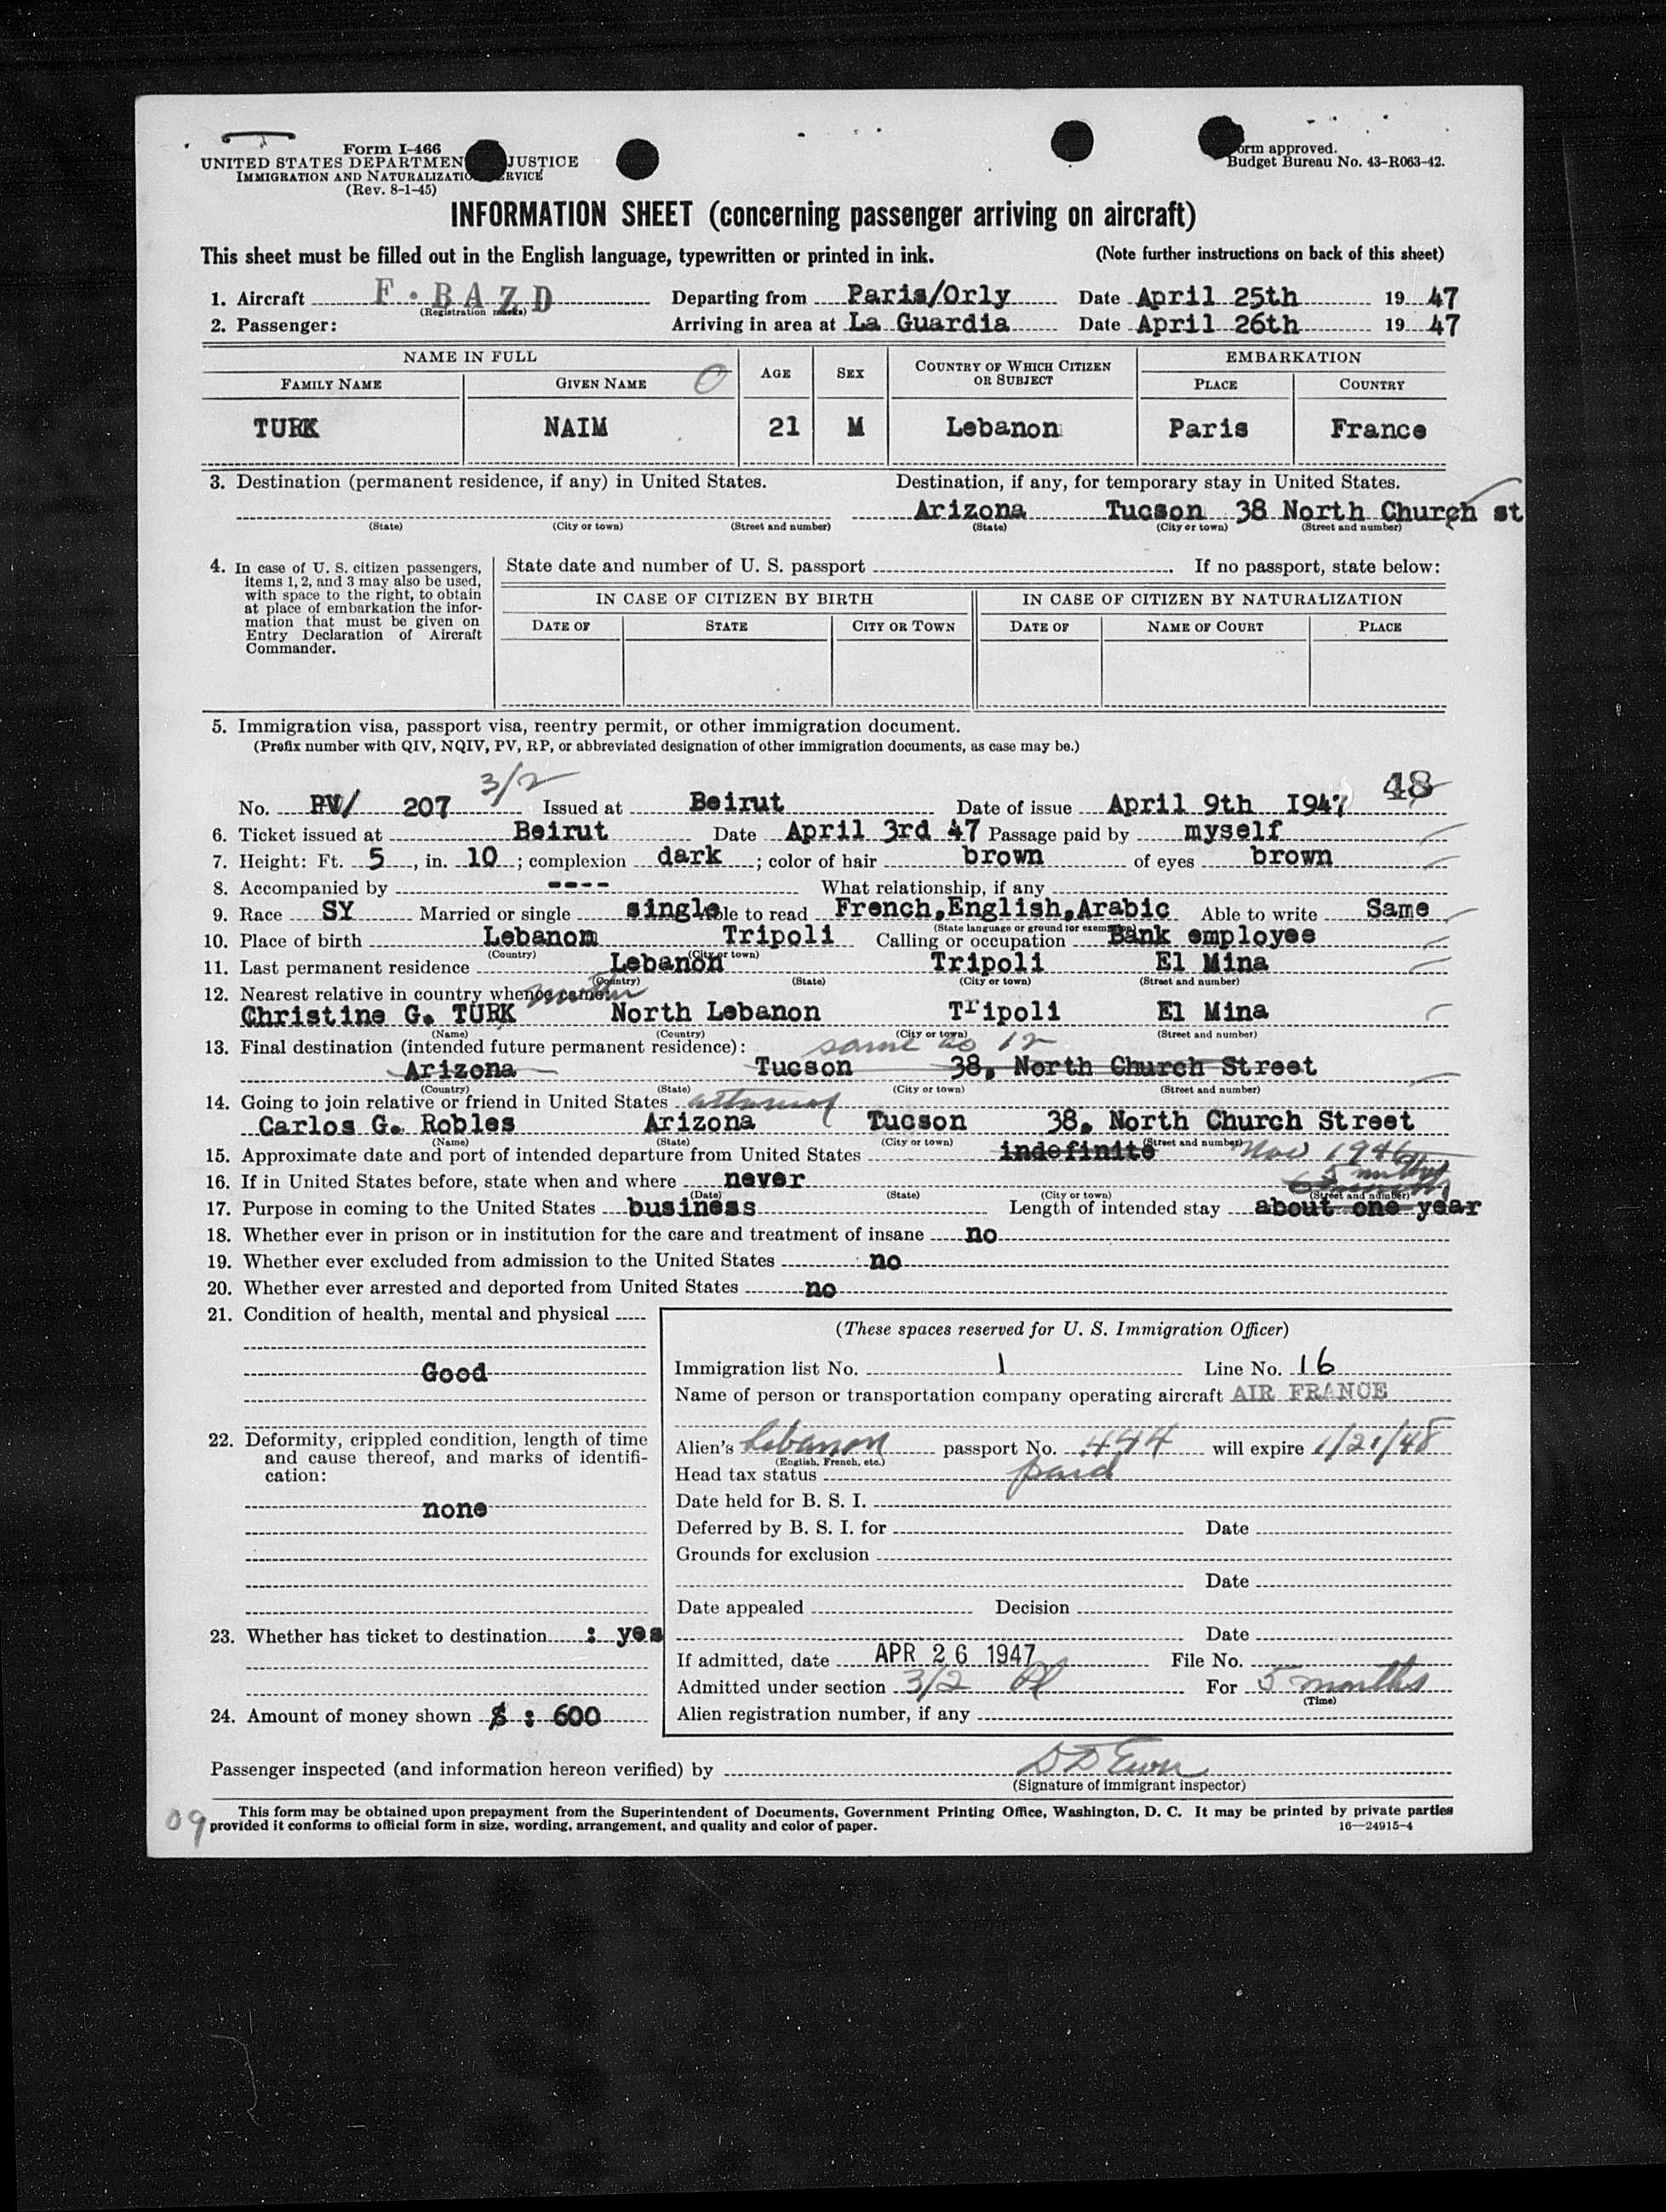 Form I-466
UNITED STATES DEPARTMEN JUSTICE
IMMIGRATION AND NATURALIZATIO RVICE
(Rev. 8-1-45)
orm approved.
Budget Bureau No. 43-R063-42.
INFORMATION SHEET (concerning passenger arriving on aircraft)
This sheet must be filled out in the English language, typewritten or printed in ink. (Note further instructions on back of this sheet)
1. Aircraft F·BAZD Departing from Paris/Orly Date April 25th 19 47
(Registration marks)
2. Passenger: Arriving in area at La Guardia Date April 26th 19 47
NAME IN FULL AGE SEX COUNTRY OF WHICH CITIZEN OR SUBJECT EMBARKATION
FAMILY NAME GIVEN NAME 0 PLACE COUNTRY
TURK NAIM 21 M Lebanon Paris France
3. Destination (permanent residence, if any) in United States. Destination, if any, for temporary stay in United States.
Arizona Tucson 38 North Church st
(State) (City or town) (Street and number) (State) (City or town) (Street and number)
4. In case of U. S. citizen passengers, items 1, 2, and 3 may also be used, with space to the right, to obtain at place of embarkation the information that must be given on Entry Declaration of Aircraft Commander.
State date and number of U. S. passport . If no passport, state below:
IN CASE OF CITIZEN BY BIRTH IN CASE OF CITIZEN BY NATURALIZATION
DATE OF STATE CITY OR TOWN DATE OF NAME OF COURT PLACE
5. Immigration visa, passport visa, reentry permit, or other immigration document.
(Prefix number with QIV, NQIV, PV, RP, or abbreviated designation of other immigration documents, as case may be.)
3/2 48
No. PV/ 207 Issued at Beirut Date of issue April 9th 1947
6. Ticket issued at Beirut Date April 3rd 47 Passage paid by myself
7. Height: Ft. 5, in. 10; complexion dark; color of hair brown of eyes brown
8. Accompanied by ---- What relationship, if any
9. Race SY Married or single single Able to read French,English,Arabic Able to write Same
(State language or ground for exemption)
10. Place of birth Lebanon Tripoli Calling or occupation Bank employee
(Country) (City or town)
11. Last permanent residence Lebanon Tripoli El Mina
(Country) (State) (City or town) (Street and number)
12. Nearest relative in country whence came: mother
Christine G. TURK North Lebanon Tripoli El Mina
(Name) (Country) (City or town) (Street and number)
13. Final destination (intended future permanent residence): same as 12
Arizona Tucson 38, North Church Street
(Country) (State) (City or town) (Street and number)
14. Going to join relative or friend in United States
Carlos G. Robles Arizona Tucson 38, North Church Street
(Name) (State) (City or town) (Street and number)
15. Approximate date and port of intended departure from United States indefinite Nov 1946
16. If in United States before, state when and where never
(Date) (State) (City or town) (Street and number)
17. Purpose in coming to the United States business Length of intended stay about one year
18. Whether ever in prison or in institution for the care and treatment of insane no
19. Whether ever excluded from admission to the United States no
20. Whether ever arrested and deported from United States no
21. Condition of health, mental and physical
Good
22. Deformity, crippled condition, length of time and cause thereof, and marks of identification:
none
23. Whether has ticket to destination : yes
24. Amount of money shown $ : 600
(These spaces reserved for U. S. Immigration Officer)
Immigration list No. 1 Line No. 16
Name of person or transportation company operating aircraft AIR FRANCE
Alien's Lebanon passport No. 444 will expire 1/21/48
(English, French, etc.)
Head tax status paid
Date held for B. S. I.
Deferred by B. S. I. for Date
Grounds for exclusion
Date
Date appealed Decision
Date
If admitted, date APR 26 1947 File No.
Admitted under section 3/2 For 5 months
(Time)
Alien registration number, if any
Passenger inspected (and information hereon verified) by
(Signature of immigrant inspector)
09
This form may be obtained upon prepayment from the Superintendent of Documents, Government Printing Office, Washington, D. C. It may be printed by private parties
provided it conforms to official form in size, wording, arrangement, and quality and color of paper. 16—24915-4